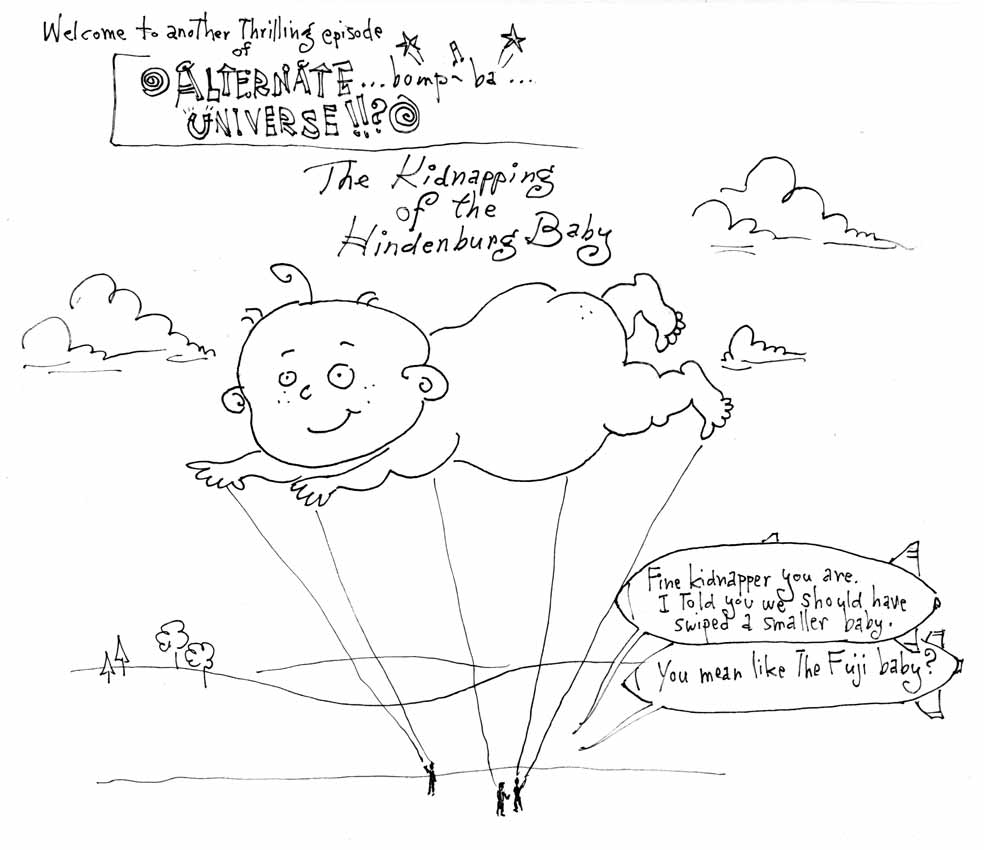 Welcome to another Thrilling episode
of
ALTERNATE...bomp~ba...
UNIVERSE!!?
The Kidnapping
of the
Hindenburg Baby
Fine kidnapper you are.
I Told you we should have
swiped a smaller baby.
You mean like The Fuji baby?